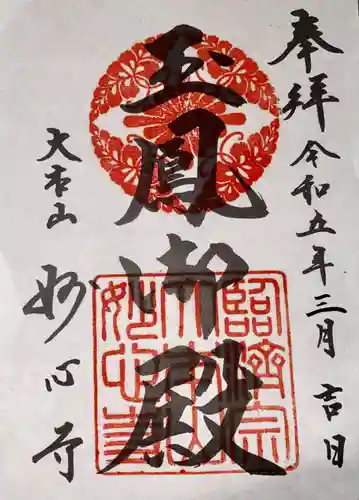 奉拝 令和五年三月吉日
玉鳳御殿
大本山
妙心寺
臨済宗
大本山
妙心寺